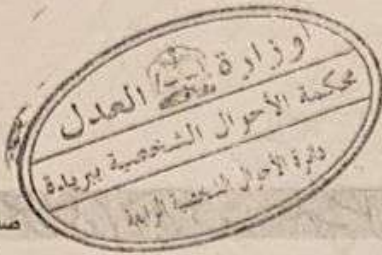 وزارة العدل
محكمة الأحوال الشخصية ببريدة
دائرة الأحوال الشخصية الرابعة